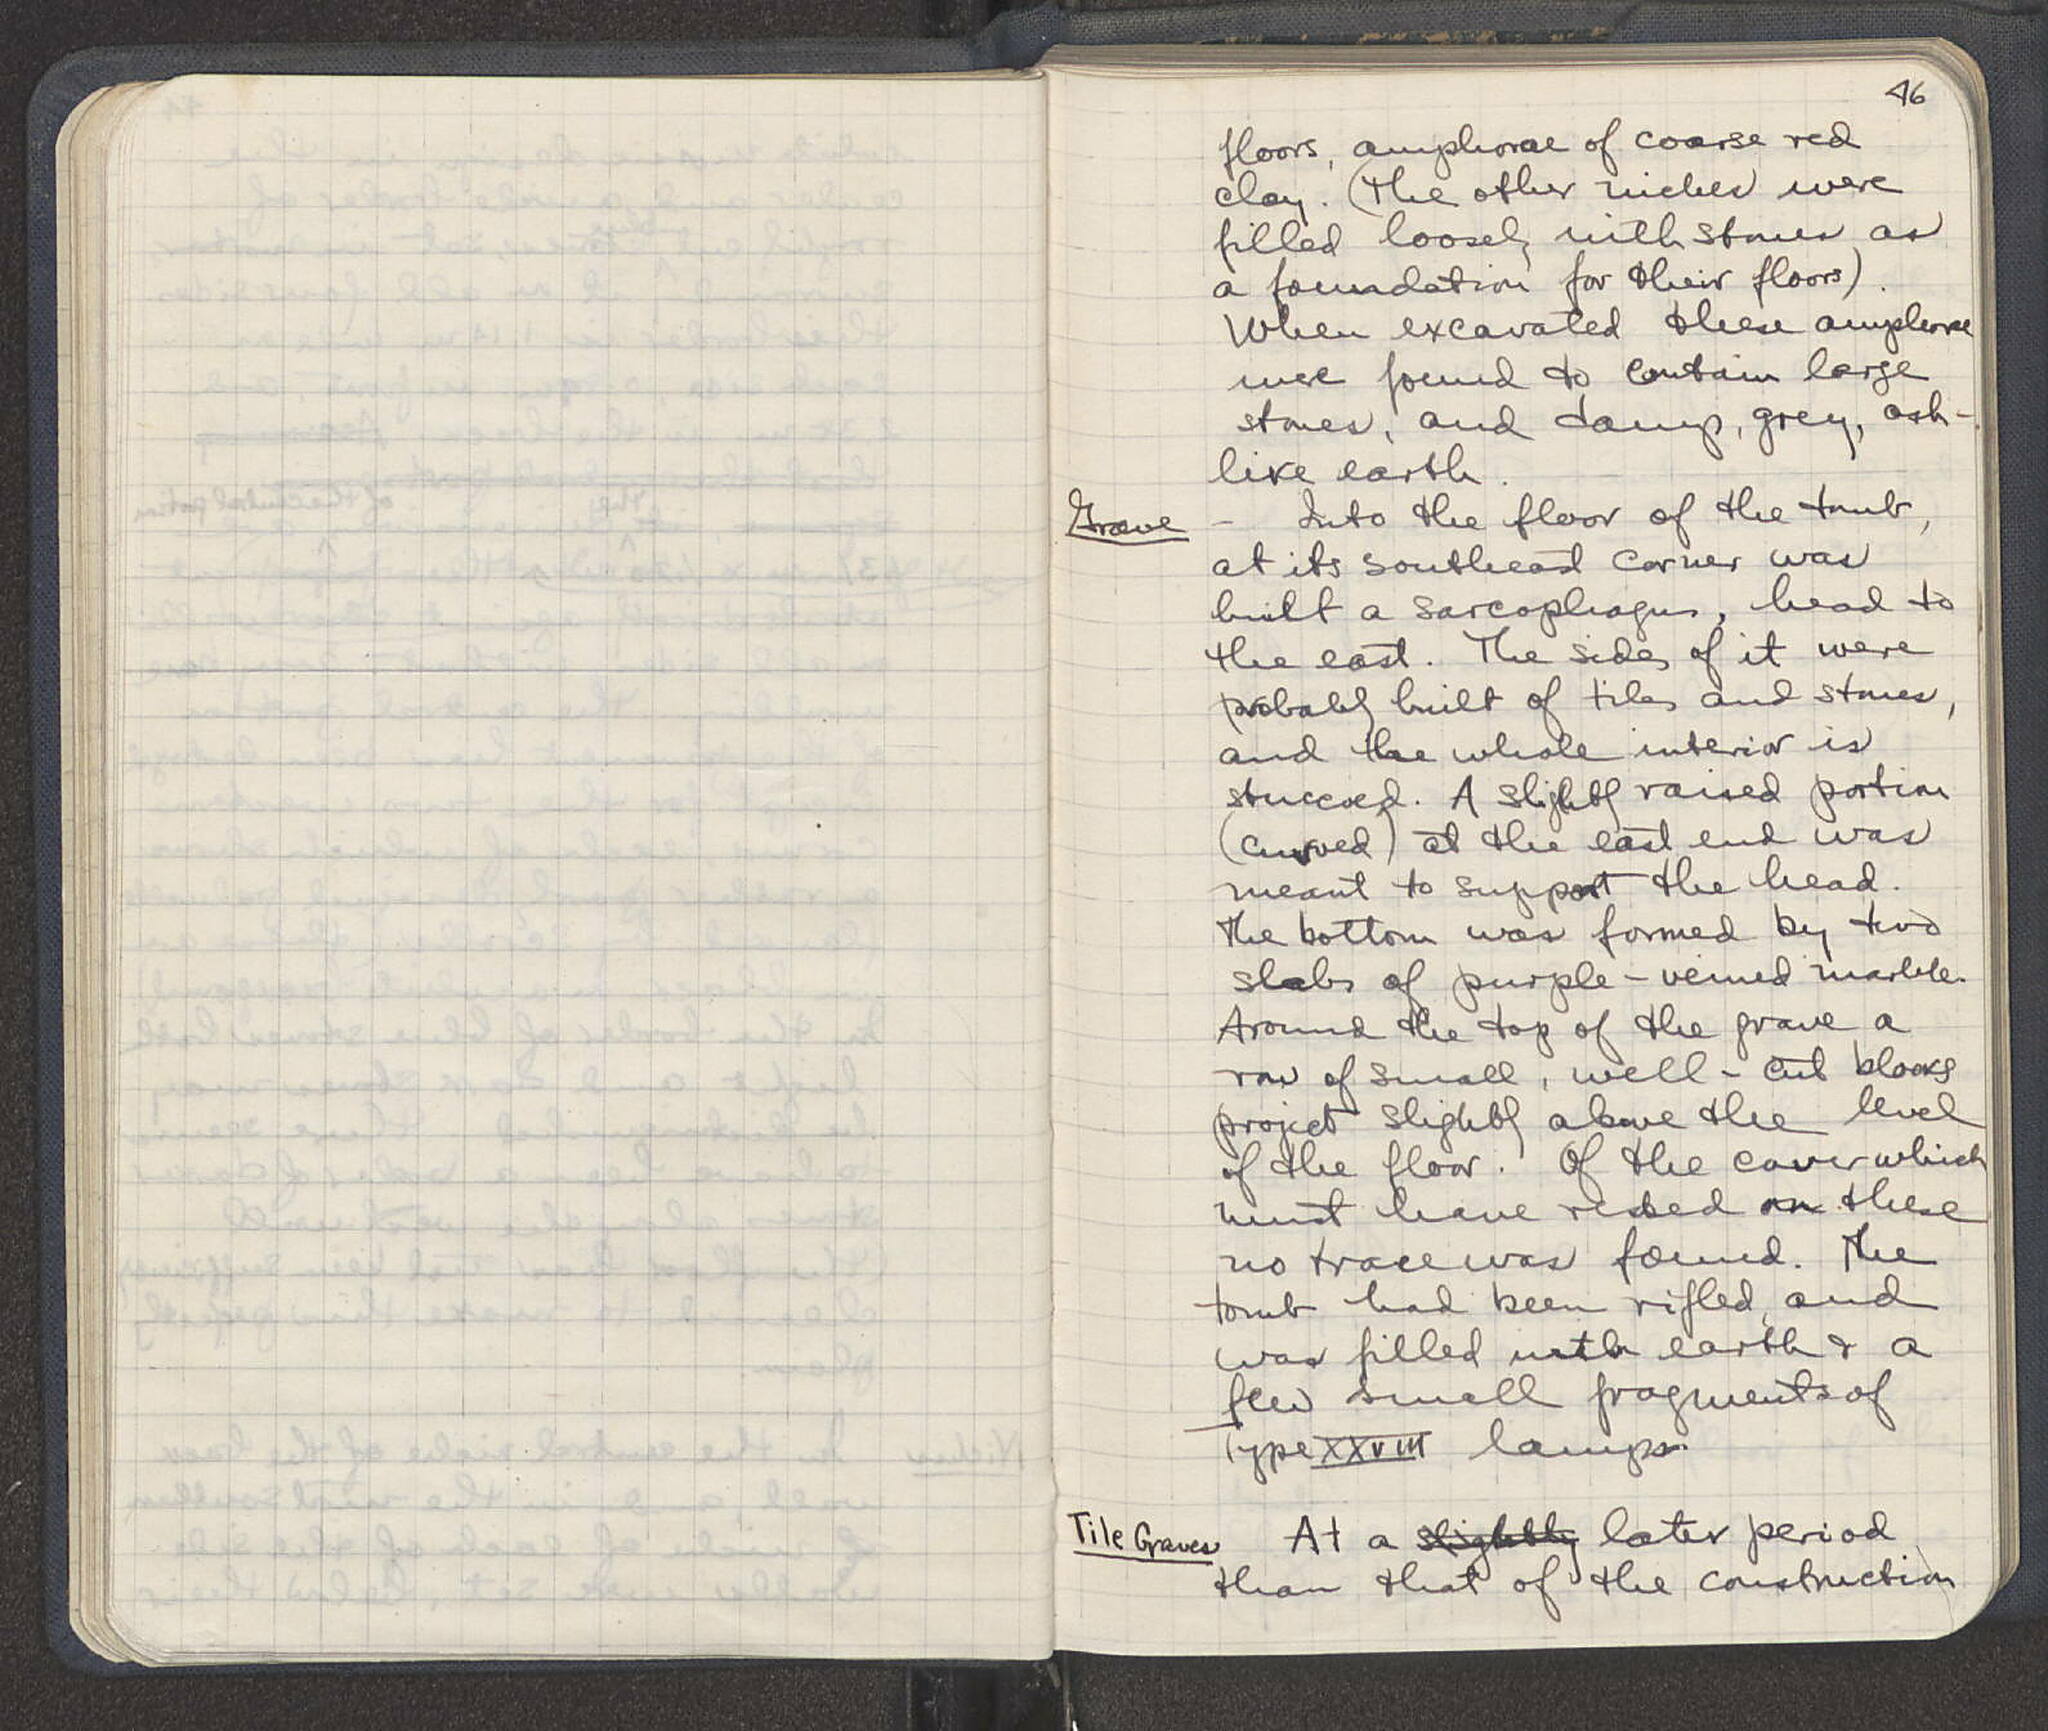 46
floors, amphorae of coarse red
clay. (The other niches were
filled loosely with stones as
a foundation for their floors).
When excavated these amphorae
were found to contain large
stones, and damp, grey, ash-
like earth.
Grave - Into the floor of the tomb,
at its southeast corner was
built a sarcophagus, head to
the east. The sides of it were
probably built of tiles and stones,
and the whole interior is
stuccoed. A slightly raised portion
(curved) at the east end was
meant to support the head.
The bottom was formed by two
slabs of purple-veined marble.
Around the top of the grave a
row of small, well-cut blocks
project slightly above the level
of the floor. Of the cover which
must have rested on these
no trace was found. The
tomb had been rifled, and
was filled with earth & a
few small fragments of
Type XXVIII lamps.
Tile Graves At a slightly later period
than that of the construction